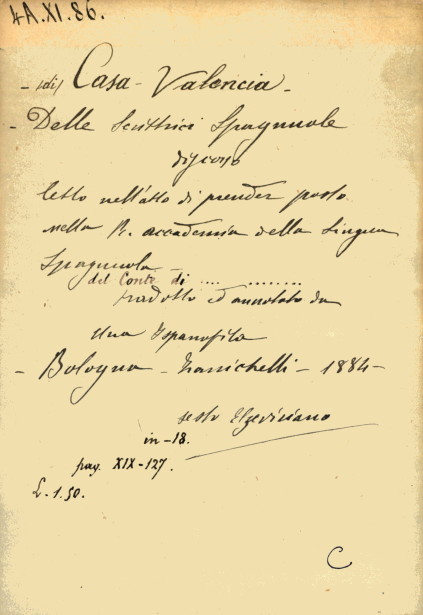 4A.XI.86.
- (di) Casa - Valencia -
- Delle Scrittrici Spagnuole
discorso
letto nell'atto di prender posto
nella R. accademia della Lingua
Spagnuola -
del Conte di .... ........
tradotto ed annotato da
Una Ispanofila
- Bologna - Zanichelli - 1884 -
sesto Elzeviriano
in - 18.
pag. XIX - 127.
£ - 1.50.
C